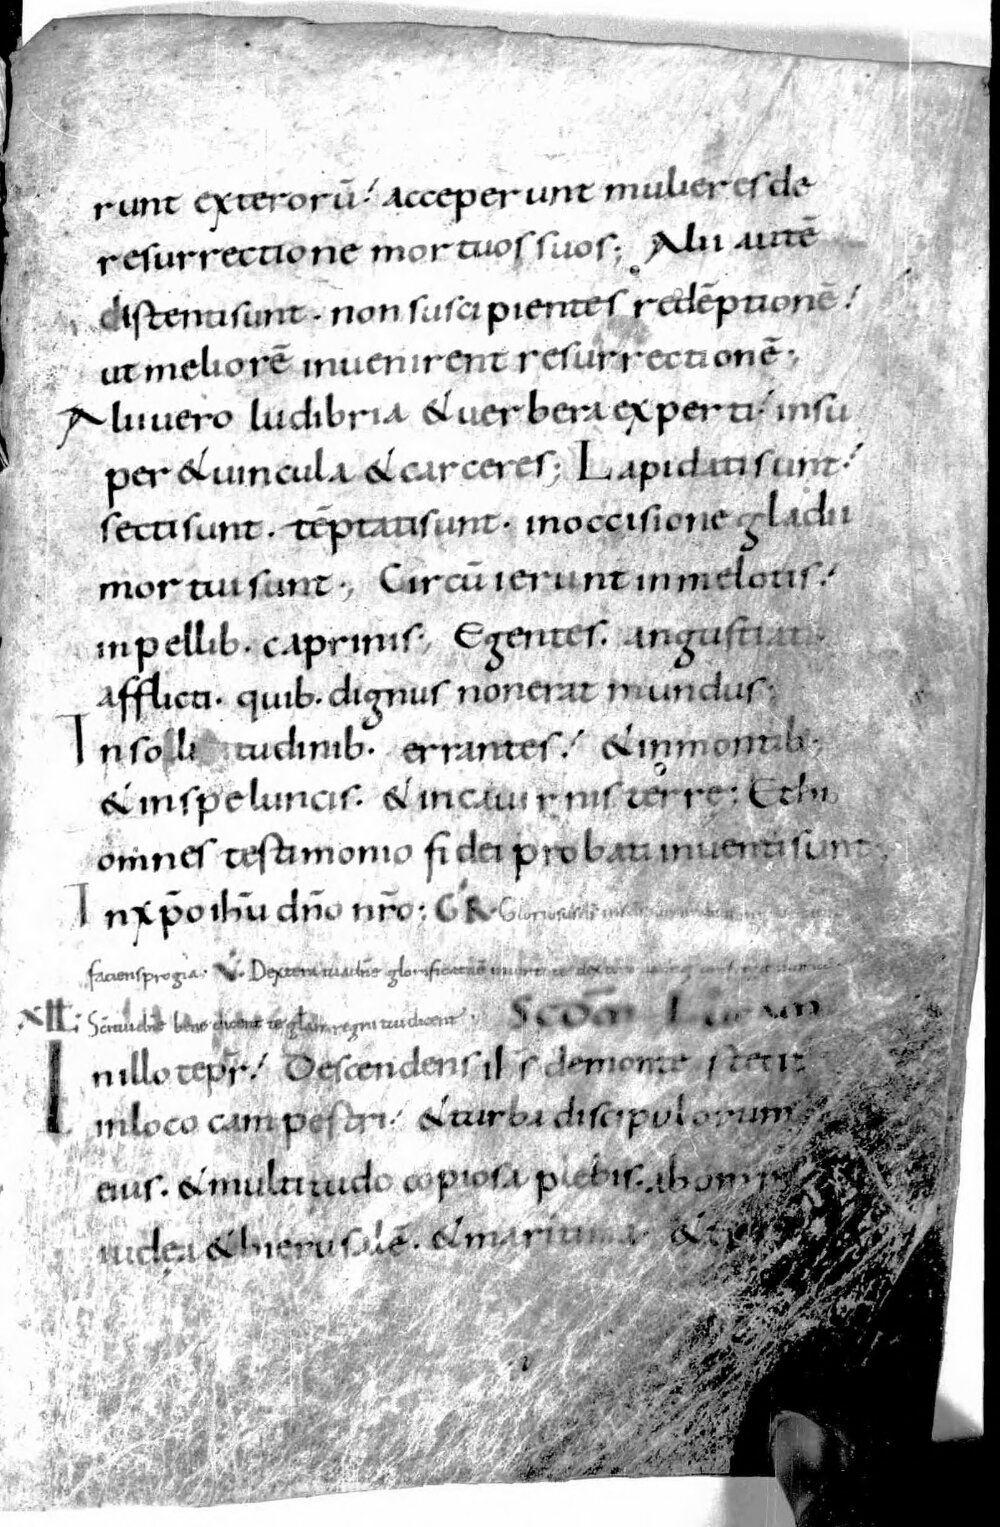 runt exterorū! acceperunt mulieres de
resurrectione mortuos suos; Alii autē
distenti sunt. non suscipientes redēptionē!
ut meliorē inuenirent resurrectionē;
Alii uero ludibria & uerbera experti! insu
per & uincula & carceres; Lapidati sunt!
secti sunt. tēptati sunt. in occisione gladii
mortui sunt; Circūierunt in melotis!
in pellib. caprinis; Egentes. angustiati.
afflicti. quib. dignus non erat mundus;
In sollitudinib. errantes! & in montib;
& in speluncis. & in cauernis terre; Et hi
omnes testimonio fidei probati inuenti sunt;
In xp̄o ihū dn̄o nr̄o; GR. Gloriosus
faciens progia. V. Dextera tua dn̄e glorificata
XII; Sc̄i tui dn̄e benedicent te glam regni tui dicent Scd̄m Lucam
In illo tepr̄! Descendens ih̄s de monte stetit
in loco campestri! & turba discipulorum
eius. & multitudo copiosa plebis. ab omni
iudea & hierusalē. & maritima &